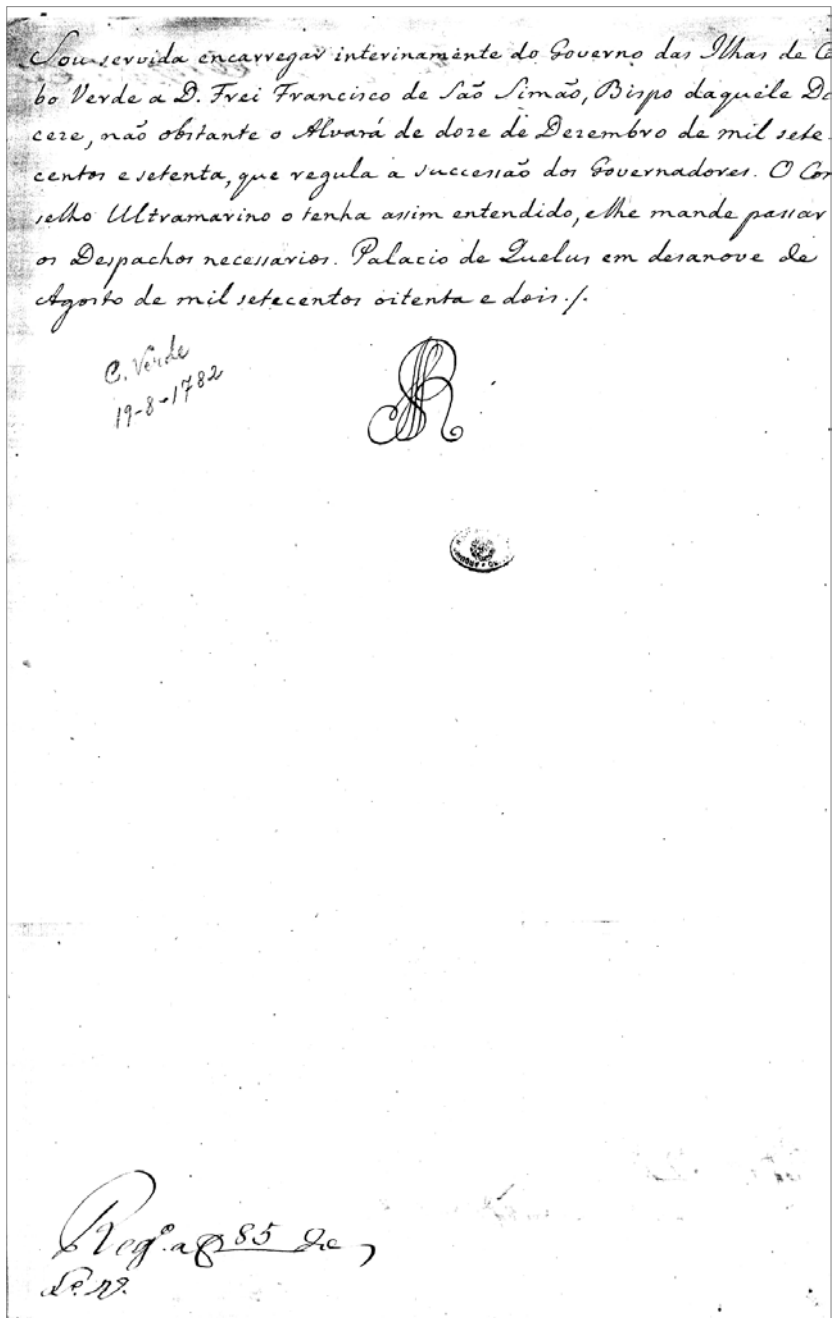 Sou servida encarregar interinamente do Governo das Ilhas de Ca
bo Verde a D. Frei Francisco de São Simão, Bispo daquéle Do
cere, não obstante o Alvará de doze de Dezembro de mil sete
centos e setenta, que regula a successão dos Governadores. O Con
selho Ultramarino o tenha assim entendido, e lhe mande passar
os Despachos necessarios. Palacio de Quelus em desanove de
Agosto de mil setecentos oitenta e dois./.
C. Verde
19-8-1782
Reg.º a f 85 do